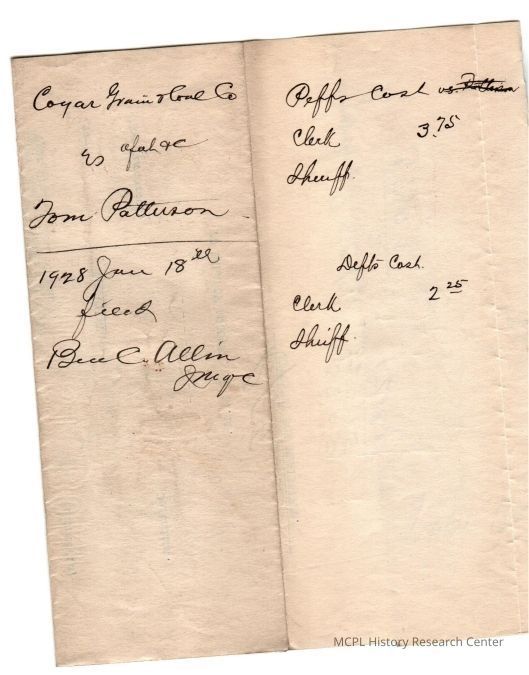 Coyar Grain & Coal Co
vs
Tom Patterson
1928 Jan 18th
filed
Ben C. Allin
JMQC
Peffs Cost vs. Patterson
Clerk 3.75
Sheriff
Defts Cost.
Clerk 2 25
Sheriff
MCPL History Research Center